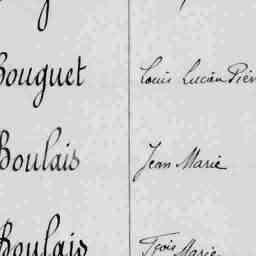 Bouguet Louis Lucien Pier
Boulais Jean Marie
Boulais Marie